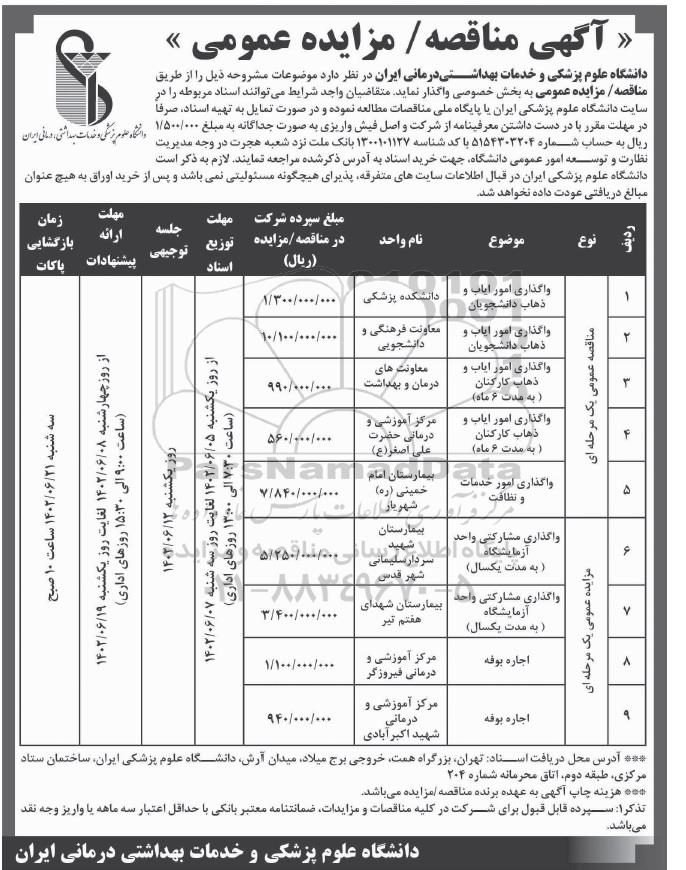 « آگهی مناقصه/ مزایده عمومی »
دانشگاه علوم پزشکی و خدمات بهداشتی، درمانی ایران
دانشگاه علوم پزشکی و خدمات بهداشــتی‌درمانی ایران در نظر دارد موضوعات مشروحه ذیل را از طریق
مناقصه/ مزایده عمومی به بخش خصوصی واگذار نماید. متقاضیان واجد شرایط می‌توانند اسناد مربوطه را در
سایت دانشگاه علوم پزشکی ایران یا پایگاه ملی مناقصات مطالعه نموده و در صورت تمایل به تهیه اسناد، صرفاً
در مهلت مقرر با در دست داشتن معرفینامه از شرکت و اصل فیش واریزی به صورت جداگانه به مبلغ ۱/۵۰۰/۰۰۰
ریال به حساب شــماره ۵۱۵۴۳۰۳۲۰۴ با کد شناسه ۱۳۰۰۱۰۱۱۲۷ بانک ملت نزد شعبه هجرت در وجه مدیریت
نظارت و توســعه امور عمومی دانشگاه، جهت خرید اسناد به آدرس ذکرشده مراجعه نمایند. لازم به ذکر است
دانشگاه علوم پزشکی ایران در قبال اطلاعات سایت های متفرقه، پذیرای هیچگونه مسئولیتی نمی باشد و پس از خرید اوراق به هیچ عنوان
مبالغ دریافتی عودت داده نخواهد شد.
ردیف نوع موضوع نام واحد مبلغ سپرده شرکت در مناقصه/مزایده (ریال) مهلت توزیع اسناد جلسه توجیهی مهلت ارائه پیشنهادات زمان بازگشایی پاکات
مناقصه عمومی یک مرحله ای
۱ واگذاری امور ایاب و ذهاب دانشجویان دانشکده پزشکی ۱/۳۰۰/۰۰۰/۰۰۰
۲ واگذاری امور ایاب و ذهاب دانشجویان معاونت فرهنگی و دانشجویی ۱۰/۱۰۰/۰۰۰/۰۰۰
۳ واگذاری امور ایاب و ذهاب کارکنان ( به مدت ۶ ماه) معاونت های درمان و بهداشت ۹۹۰/۰۰۰/۰۰۰
۴ واگذاری امور ایاب و ذهاب کارکنان ( به مدت ۶ ماه) مرکز آموزشی و درمانی حضرت علی اصغر(ع) ۵۶۰/۰۰۰/۰۰۰
۵ واگذاری امور خدمات و نظافت بیمارستان امام خمینی (ره) شهریار ۷/۸۴۰/۰۰۰/۰۰۰
مزایده عمومی یک مرحله ای
۶ واگذاری مشارکتی واحد آزمایشگاه ( به مدت یکسال) بیمارستان شهید سردارسلیمانی شهر قدس ۵/۲۵۰/۰۰۰/۰۰۰
۷ واگذاری مشارکتی واحد آزمایشگاه ( به مدت یکسال) بیمارستان شهدای هفتم تیر ۳/۴۰۰/۰۰۰/۰۰۰
۸ اجاره بوفه مرکز آموزشی و درمانی فیروزگر ۱/۱۰۰/۰۰۰/۰۰۰
۹ اجاره بوفه مرکز آموزشی و درمانی شهید اکبرآبادی ۹۴۰/۰۰۰/۰۰۰
از روز یکشنبه ۱۴۰۲/۰۶/۰۵ لغایت روز سه شنبه ۱۴۰۲/۰۶/۰۷
(ساعت ۷:۳۰ الی ۱۳:۰۰ روزهای اداری)
روز یکشنبه ۱۴۰۲/۰۶/۱۲
از روز چهارشنبه ۱۴۰۲/۰۶/۰۸ لغایت روز یکشنبه ۱۴۰۲/۰۶/۱۹
(ساعت ۹:۰۰ الی ۱۵:۳۰ روزهای اداری)
سه شنبه ۱۴۰۲/۰۶/۲۱ ساعت ۱۰ صبح
ParsNamadData
۰۲۱-۸۸۳۴۹۶۷۰-۵
*** آدرس محل دریافت اســناد: تهران، بزرگراه همت، خروجی برج میلاد، میدان آرش، دانشــگاه علوم پزشکی ایران، ساختمان ستاد
مرکزی، طبقه دوم، اتاق محرمانه شماره ۲۰۴
*** هزینه چاپ آگهی به عهده برنده مناقصه/مزایده می‌باشد.
تذکر۱: ســپرده قابل قبول برای شــرکت در کلیه مناقصات و مزایدات، ضمانتنامه معتبر بانکی با حداقل اعتبار سه ماهه یا واریز وجه نقد
می‌باشد.
دانشگاه علوم پزشکی و خدمات بهداشتی درمانی ایران